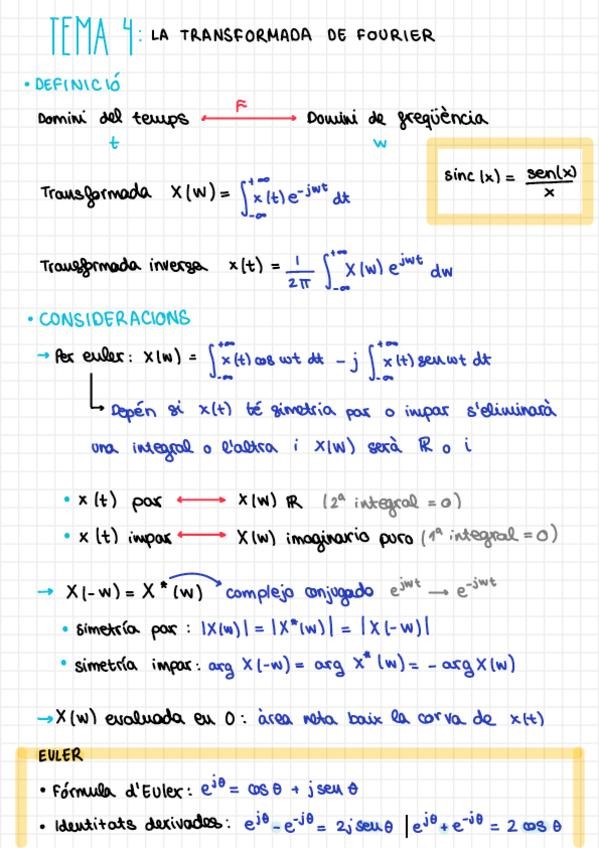 TEMA 4: LA TRANSFORMADA DE FOURIER
• DEFINICIÓ
Domini del temps ⟷ F Domini de freqüència
t w
sinc(x) = sen(x)/x
Transformada X(w) = ∫_{-∞}^{+∞} x(t) e^{-jwt} dt
Transformada inversa x(t) = 1/2π ∫_{-∞}^{+∞} X(w) e^{jwt} dw
• CONSIDERACIONS
→ Per euler: X(w) = ∫_{-∞}^{+∞} x(t) cos wt dt - j ∫_{-∞}^{+∞} x(t) sen wt dt
↳ Depén si x(t) té simetria par o impar s'eliminarà
una integral o l'altra i X(w) serà ℝ o i
• x(t) par ⟷ X(w) ℝ (2ª integral = 0)
• x(t) impar ⟷ X(w) imaginario puro (1ª integral = 0)
→ X(-w) = X*(w) complejo conjugado e^{jwt} → e^{-jwt}
• simetría par: |X(w)| = |X*(w)| = |X(-w)|
• simetría impar: arg X(-w) = arg X*(w) = - arg X(w)
→ X(w) evaluada en 0: àrea neta baix la corva de x(t)
EULER
• Fórmula d'Euler: e^{jθ} = cos θ + j sen θ
• Identitats derivades: e^{jθ} - e^{-jθ} = 2j sen θ | e^{jθ} + e^{-jθ} = 2 cos θ